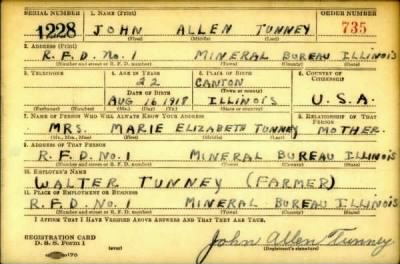 SERIAL NUMBER 1. NAME (Print) ORDER NUMBER
1228 JOHN ALLEN TUNNEY 735
(First) (Middle) (Last)
2. ADDRESS (Print)
R.F.D. No. 1 MINERAL BUREAU ILLINOIS
(Number and street or R. F. D. number) (Town) (County) (State)
3. TELEPHONE 4. AGE IN YEARS 5. PLACE OF BIRTH 6. COUNTRY OF CITIZENSHIP
22 CANTON
DATE OF BIRTH (Town or county)
AUG 16 1918 ILLINOIS U.S.A.
(Exchange) (Number) (Mo.) (Day) (Yr.) (State or country)
7. NAME OF PERSON WHO WILL ALWAYS KNOW YOUR ADDRESS 8. RELATIONSHIP OF THAT PERSON
MRS. MARIE ELIZABETH TUNNEY MOTHER.
(Mr., Mrs., Miss) (First) (Middle) (Last)
9. ADDRESS OF THAT PERSON
R.F.D. No. 1 MINERAL BUREAU ILLINOIS
(Number and street or R. F. D. number) (Town) (County) (State)
10. EMPLOYER'S NAME
WALTER TUNNEY (FARMER)
11. PLACE OF EMPLOYMENT OR BUSINESS
R.F.D. No. 1 MINERAL BUREAU ILLINOIS
(Number and street or R. F. D. number) (Town) (County) (State)
I AFFIRM THAT I HAVE VERIFIED ABOVE ANSWERS AND THAT THEY ARE TRUE.
REGISTRATION CARD
D. S. S. Form 1 (over) John Allen Tunney
(Registrant's signature)